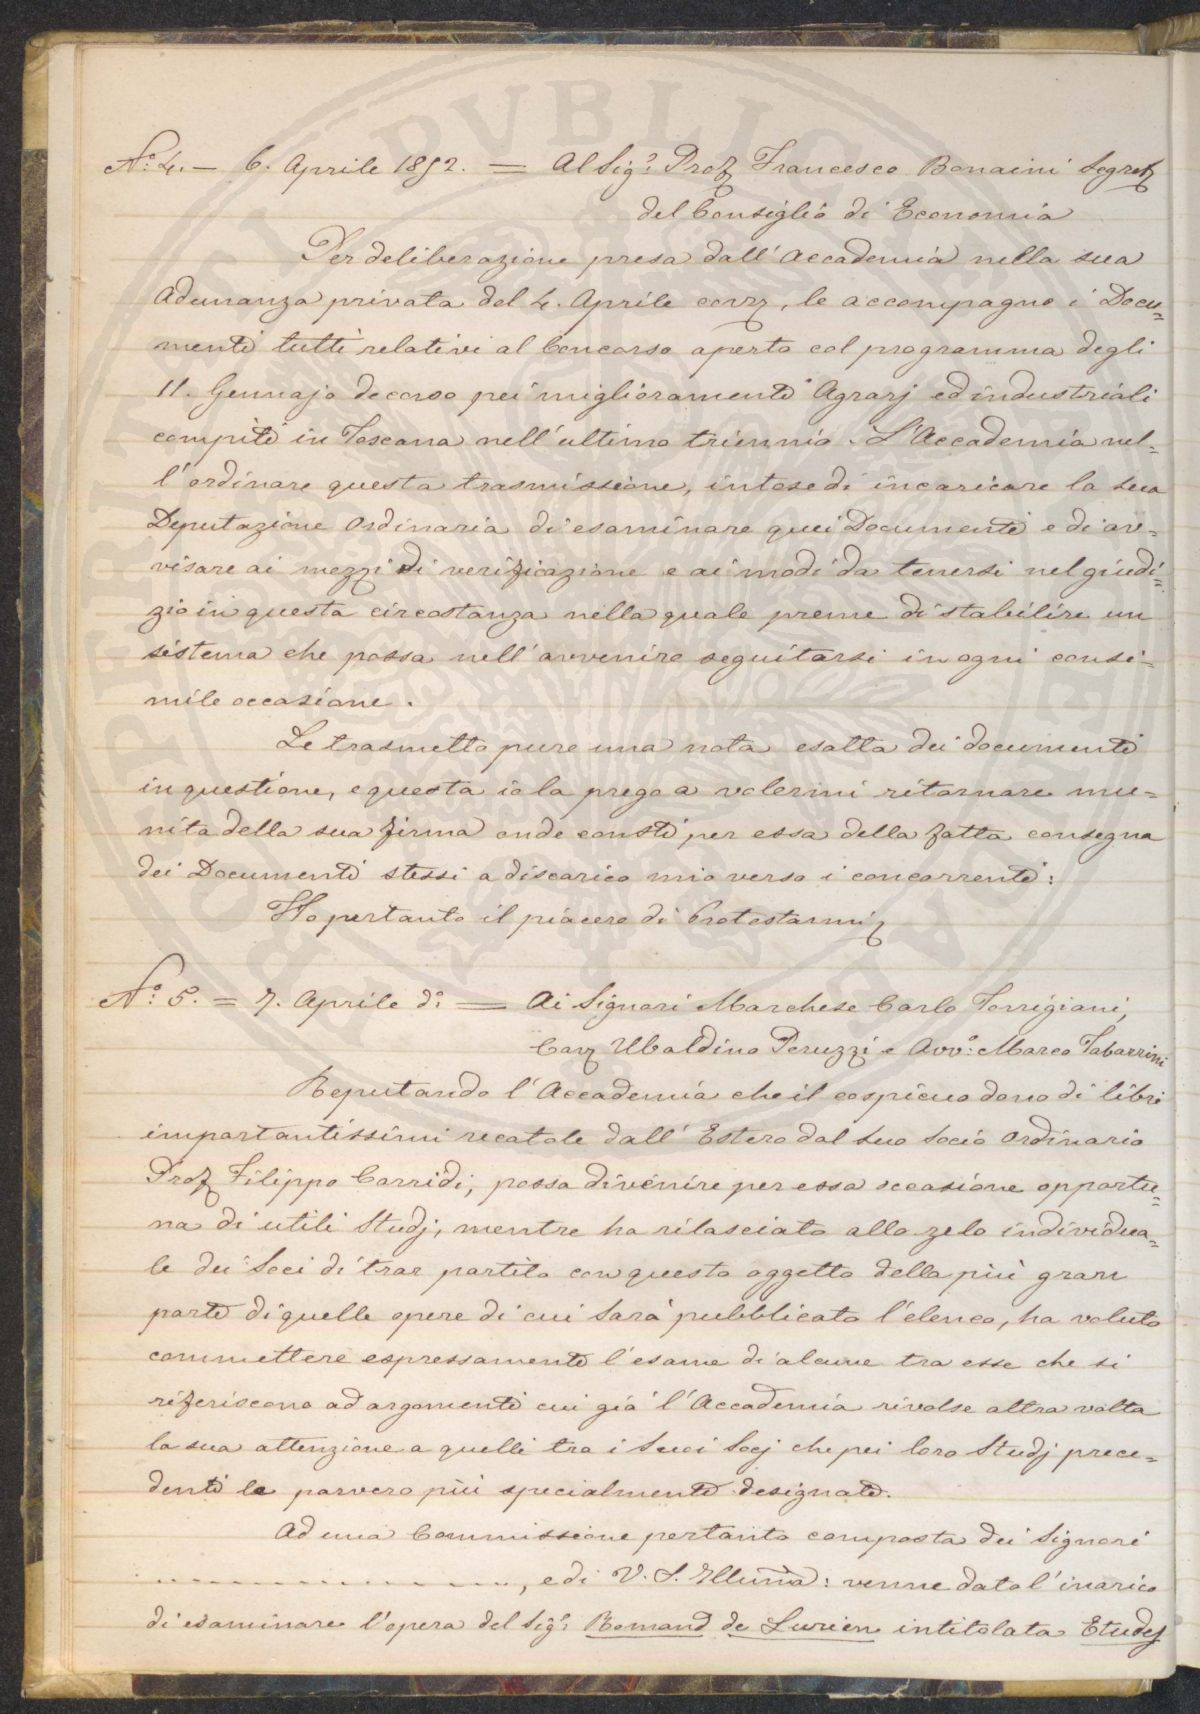 N.º 4. — 6. Aprile 1852. = Al Sig.r Prof Francesco Bonaini Segret
del Consiglio di Economia
Per deliberazione presa dall'Accademia nella sua
Adunanza privata del 4. Aprile corr, le accompagno i Docu=
menti tutti relativi al Concorso aperto col programma degli
11. Gennajo decorso pei miglioramenti Agrarj ed industriali
compiti in Toscana nell'ultimo triennio. L'Accademia nel=
l'ordinare questa trasmissione, intese di incaricare la sua
Deputazione Ordinaria di esaminare quei Documenti e di av=
visare ai mezzi di verificazione e ai modi da tenersi nel giudi=
zio in questa circostanza nella quale preme di stabilire un
sistema che possa nell'avvenire seguitarsi in ogni consi=
mile occasione.
Le trasmetto pure una nota esatta dei documenti
in questione, e questa io la prego a volermi ritornare mu=
nita della sua firma onde consti per essa della fatta consegna
dei Documenti stessi a discarico mio verso i concorrenti:
Ho pertanto il piacere di Protestarmi
N.º 5. = 7. Aprile d.º = Ai Signori Marchese Carlo Torrigiani,
Cav Ubaldino Peruzzi e Avv.º Marco Tabarrini
Reputando l'Accademia che il cospicuo dono di libri
importantissimi recatole dall'Estero dal suo Socio Ordinario
Prof Filippo Corridi, possa divenire per essa occasione opportu=
na di utili Studj, mentre ha rilasciato allo zelo individua=
le dei Soci di trar partito con questo oggetto della più gran
parte di quelle opere di cui sarà pubblicato l'elenco, ha voluto
commettere espressamente l'esame di alcune tra esse che si
riferiscono ad argomenti cui già l'Accademia rivolse altra volta
la sua attenzione a quelli tra i Suoi Socj che pei loro Studj prece=
denti le parvero più specialmente designati.
Ad una Commissione pertanto composta dei Signori
...................., e di V. S. Illuma: venne dato l'inarico
di esaminare l'opera del Sig.r Romand de Lurien intitolata Etudes